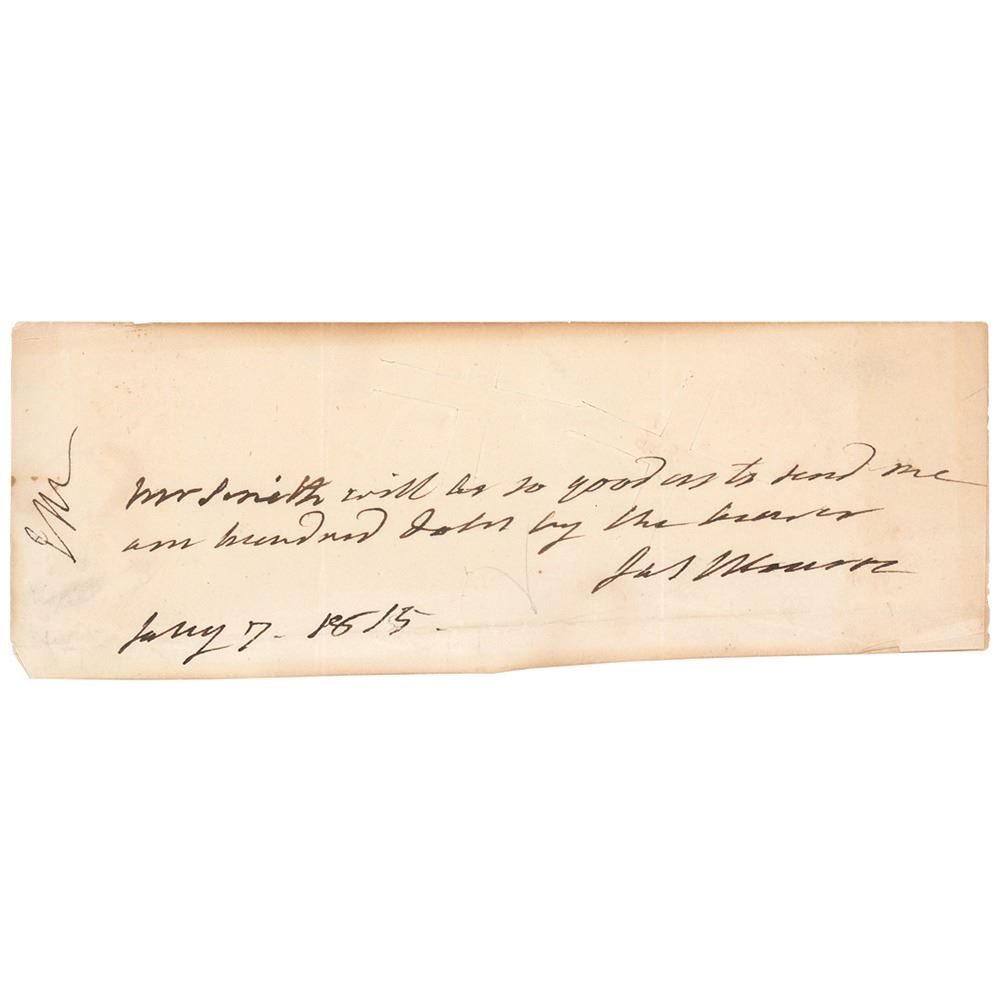 Mr Smith will be so good as to send me
an hundred dolrs by the bearer
Jas Monroe
Jany 7. 1815.
EM